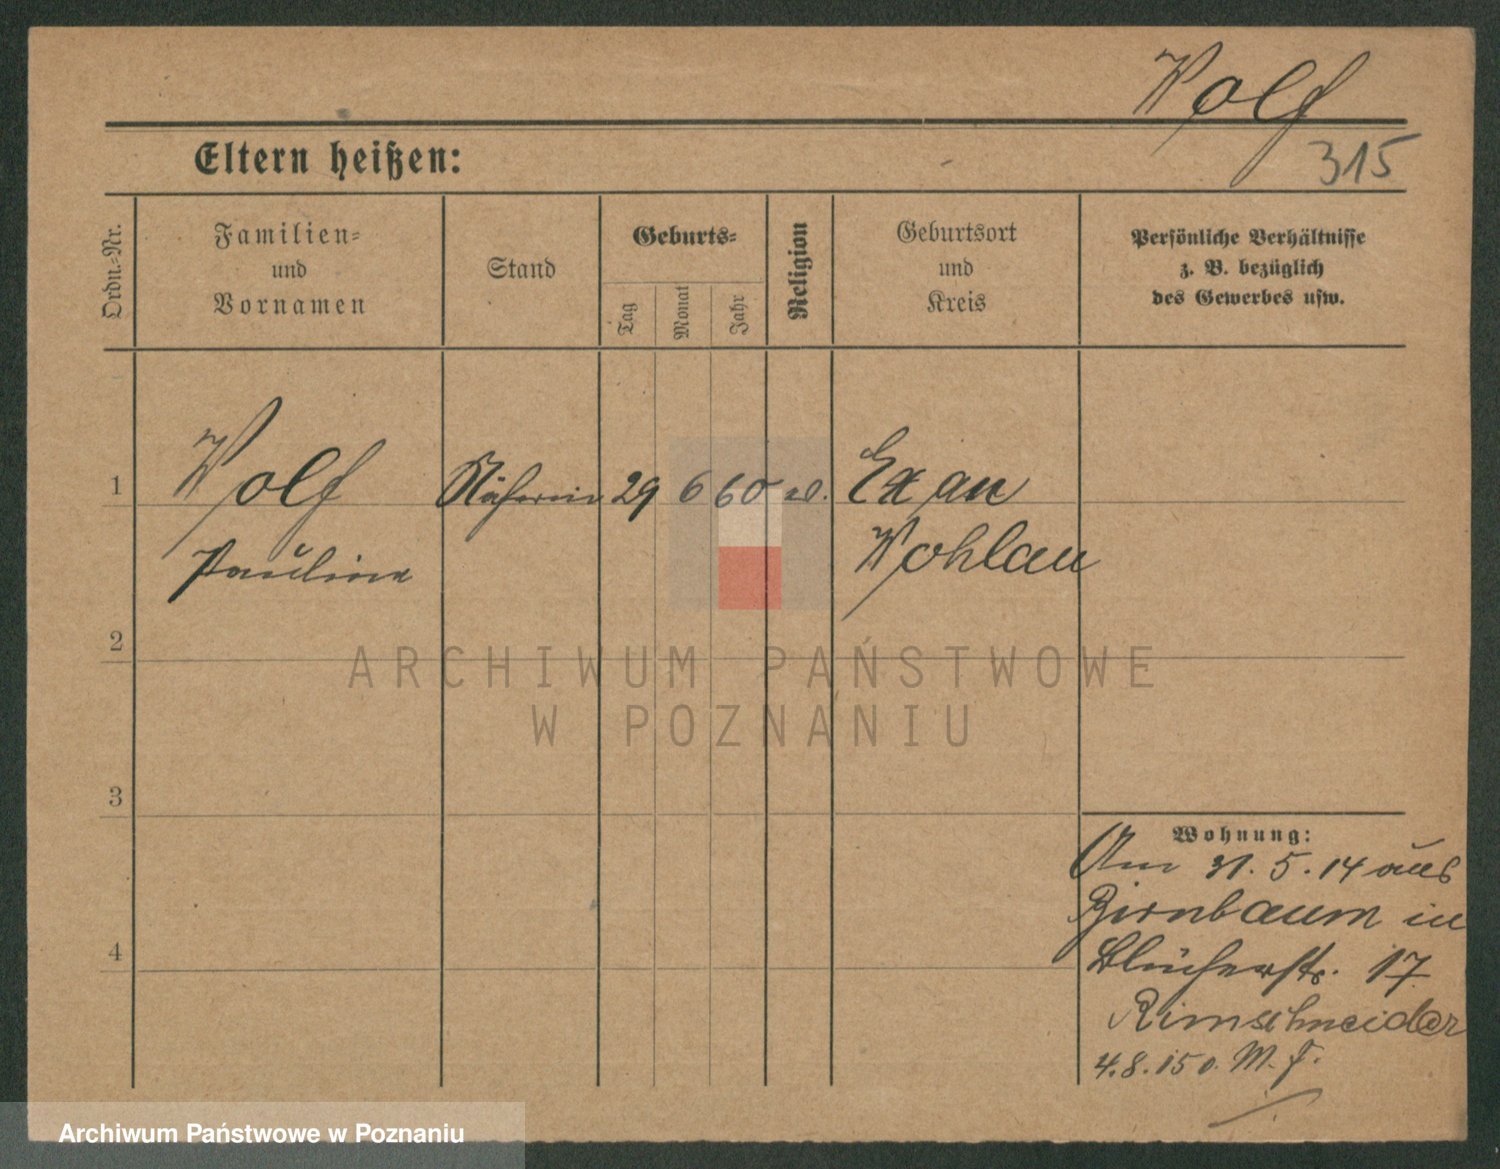 Wolf
315
Eltern heißen:
Ordn.-Nr.
Familien-
und
Vornamen
Stand
Geburts-
Tag
Monat
Jahr
Religion
Geburtsort
und
Kreis
Persönliche Verhältnisse
z. B. bezüglich
des Gewerbes usw.
1
Wolf
Näherin
29
6
60
Exau
Paulina
Wohlau
2
ARCHIWUM PAŃSTWOWE
W POZNANIU
3
Wohnung:
Am 31.5.14 aus
Birnbaum in
4
Blücherstr. 17
Rimschneider
4.8.15
Archiwum Państwowe w Poznaniu